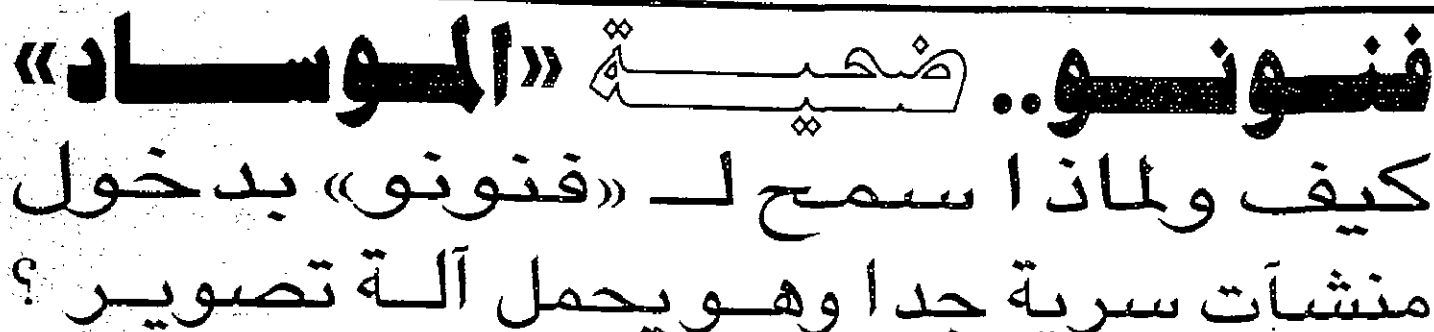 فنونو.. ضحية «الموساد»
كيف ولماذا سمح لـ «فنونو» بدخول
منشآت سرية جدا وهو يحمل آلة تصوير ؟